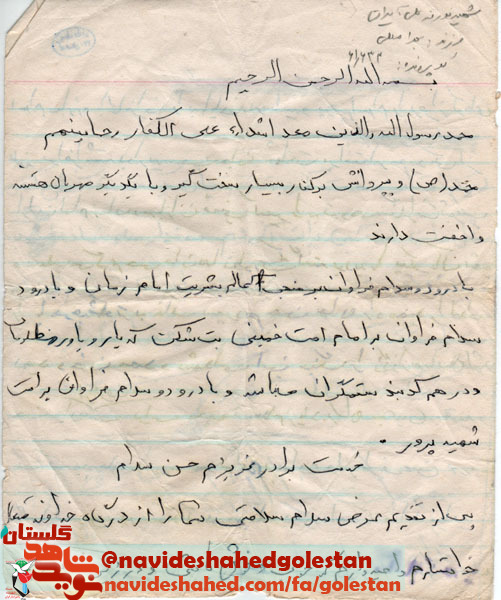 فرزند:
کد پرونده:
بسم الله الرحمن الرحیم
محمد رسول الله والذین معه اشداء علی الکفار رحما بینهم
محمد (ص) و پیروانش بر کفار بسیار سخت گیر و با یکدیگر مهربان هستند
دارند
با درود و سلام فراوان بشریت امام زمان و با درود
سلام فراوان بر امام امت خمینی بت شکن که یار و یاور مظلومان
و در هم کوبنده ستمگران میباشد و با درود و سلام فراوان بر امت
شهید پرور.
خدمت برادر عزیزم حسن سلام
پس از تقدیم عرض سلام سلامتی شما را از درگاه خداوند متعال
خواستارم
گلستان
نوید شاهد
@navideshahedgolestan
navideshahed.com/fa/golestan